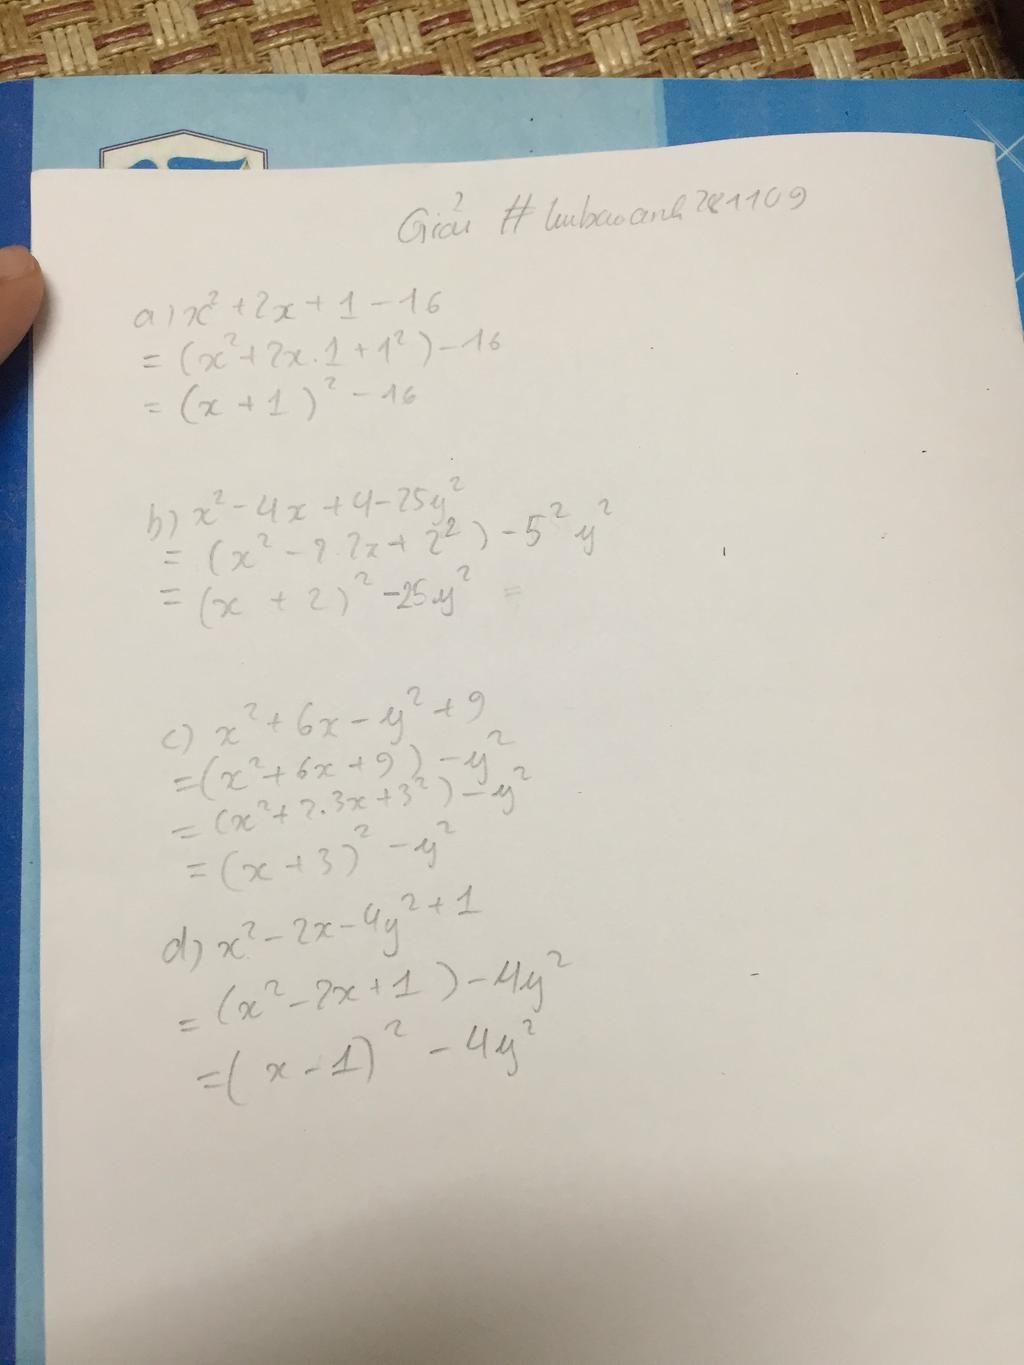 Giải # lưubaoanh281109
a) x² + 2x + 1 - 16
= (x² + 2x.1 + 1²) - 16
= (x + 1)² - 16
b) x² - 4x + 4 - 25y²
= (x² - 2.2x + 2²) - 5²y²
= (x + 2)² - 25y² =
c) x² + 6x - y² + 9
= (x² + 6x + 9) - y²
= (x² + 2.3x + 3²) - y²
= (x + 3)² - y²
d) x² - 2x - 4y² + 1
= (x² - 2x + 1) - 4y²
= (x - 1)² - 4y²